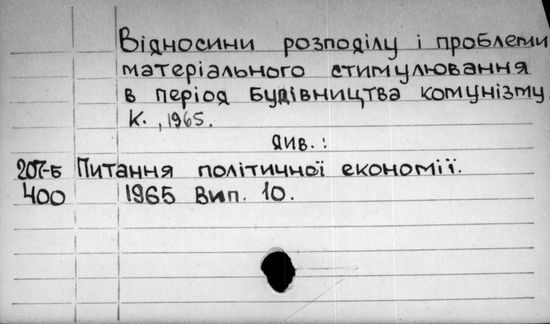 Відносини розподілу і проблеми
матеріального стимулювання
в період будівництва комунізму.
К., 1965.
Див.:
207-Б Питання політичної економії.
400 1965 Вип. 10.